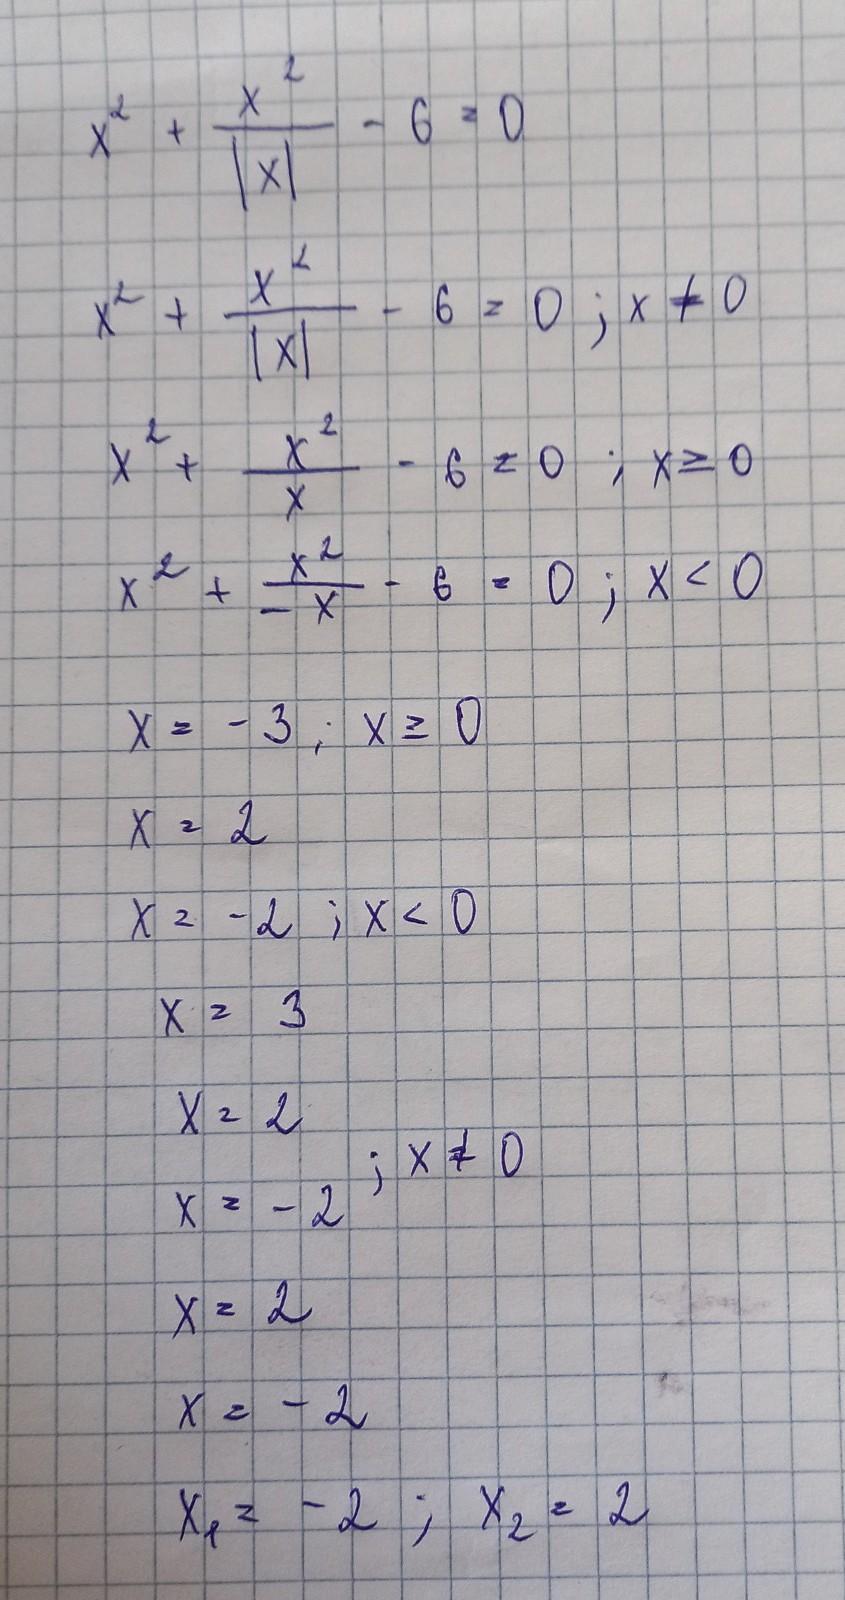 x² + x²/|x| - 6 = 0
x² + x²/|x| - 6 = 0 ; x ≠ 0
x² + x²/x - 6 = 0 ; x ≥ 0
x² + x²/-x - 6 = 0 ; x < 0
x = -3 ; x ≥ 0
x = 2
x = -2 ; x < 0
x = 3
x = 2
; x ≠ 0
x = -2
x = 2
x = -2
x₁ = -2 ; x₂ = 2